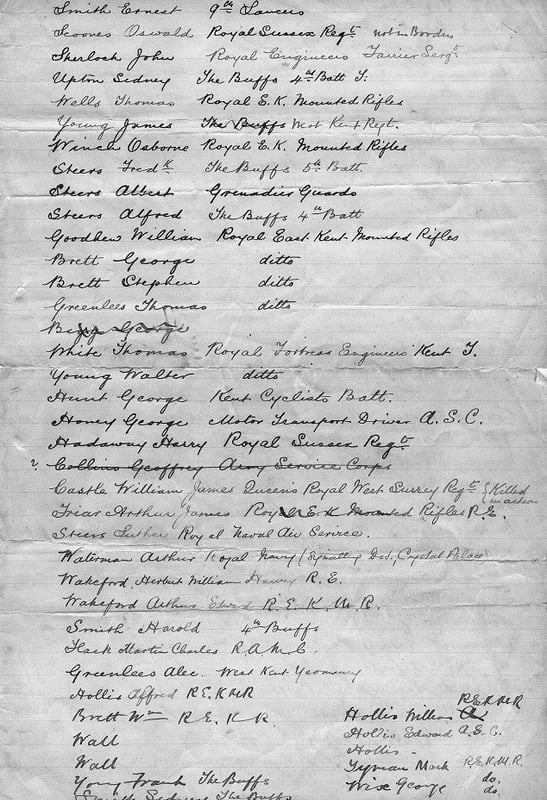 Smith Ernest 9th Lancers
Scones Oswald Royal Sussex Regt not in Borden
Sherlock John Royal Engineers Farrier Sergt
Upton Sidney The Buffs 4th Batt T.
Wells Thomas Royal E.K. Mounted Rifles
Young James The Buffs West Kent Regt.
Winch Osborne Royal E.K. Mounted Rifles
Steers Fredk The Buffs 5th Batt.
Steers Albert Grenadier Guards
Steers Alfred The Buffs 4th Batt
Goodhew William Royal East Kent Mounted Rifles
Brett George ditto
Brett Stephen ditto
Greenlees Thomas ditto
Bigg George
White Thomas Royal Fortress Engineers Kent T.
Young Walter ditto
Hunt George Kent Cyclists Batt.
Honey George Motor Transport Driver A.S.C.
Hadaway Harry Royal Sussex Regt
? Collins Geoffrey Army Service Corps
Castle William James Queens Royal West Surrey Regt { Killed in action
Friar Arthur James Royal E.K. Mounted Rifles R.E.
Steers Luther Royal Naval Air Service.
Waterman Arthur Royal Navy (Signalling Dis, Crystal Palace)
Wakeford, Herbert William Henry R.E.
Wakeford Arthur Edward R.E.K.M.R.
Smith Harold 4th Buffs
Hack Martin Charles R.A.M.C.
Greenlees Alec. West Kent Yeomanry
Hollis Alfred R.E.K.M.R
Brett Wm R.E.K.R.
Wall
Wall
Young Frank The Buffs
Sidney The Buffs
Hollis William R.E.K.M.R
Hollis Edward A.S.C.
Hollis -
Tyman Mark R.E.K.M.R.
Wise George do.
do.